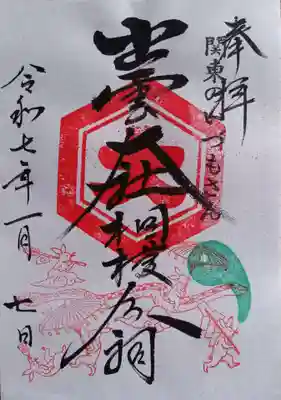 奉拝
関東のいづもさん
出雲大社相模分祠
令和七年一月七日